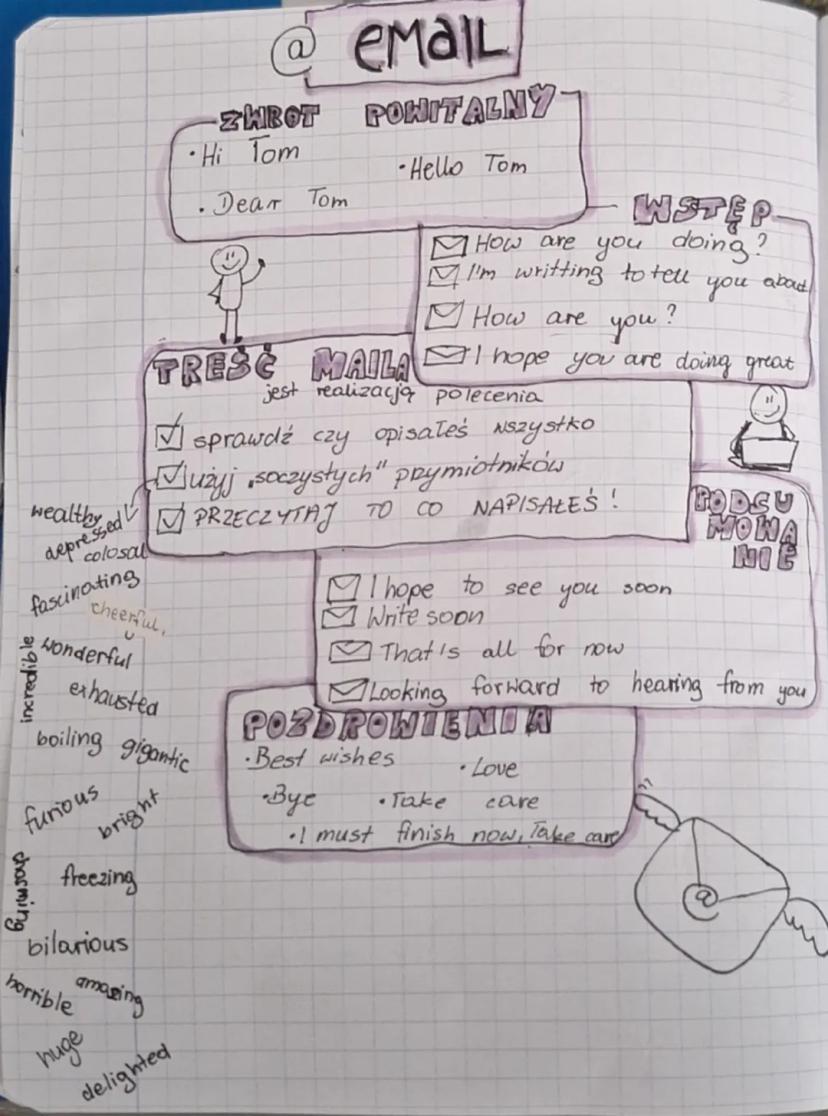 @ EMAIL
ZWROT POWITALNY
• Hi Tom
• Hello Tom
• Dear Tom
WSTĘP
How are you doing?
I'm writting to tell you about
How are you?
I hope you are doing great
TREŚĆ MAILA
jest realizacją polecenia
sprawdź czy opisałeś wszystko
użyj „soczystych" przymiotników
PRZECZYTAJ TO CO NAPISAŁEŚ!
PODSU
MOWA
NIE
I hope to see you soon
Write soon
That's all for now
Looking forward to hearing from you
POZDROWIENIA
• Best wishes
• Love
• Bye
• Take care
• I must finish now, Take care
wealthy
depressed
colosal
fascinating
cheerful,
wonderful
incredible
exhausted
boiling
gigantic
furious
bright
charming
freezing
bilarious
horrible
amazing
huge
delighted
@